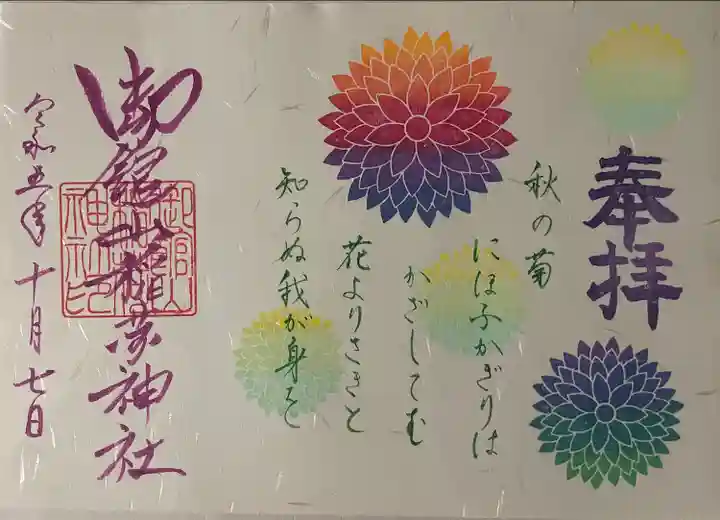 奉拝
秋の菊
にほふかぎりは
かざしてむ
花よりさきと
知らぬ我が身を
御館山稲荷神社
御館山稲荷神社印
令和五年 十月 七日